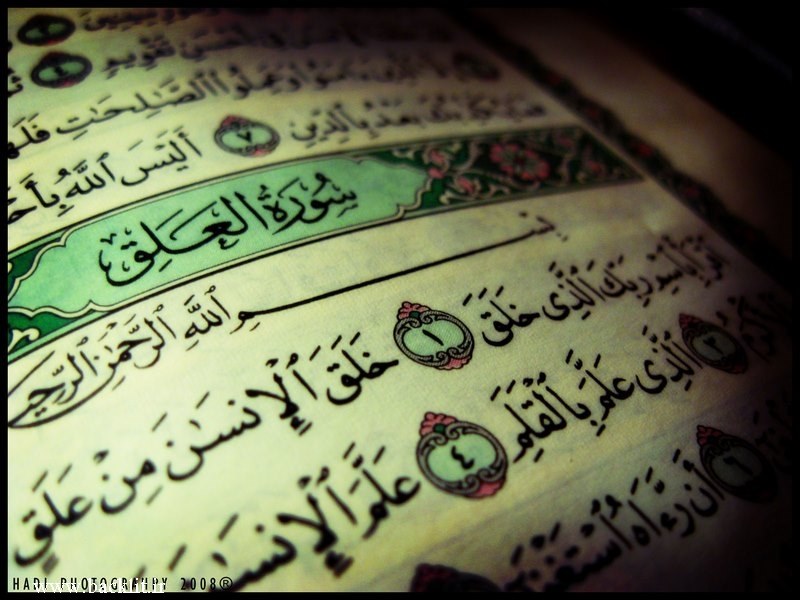 تَقْوِيمٍ ٤
ٱلصَّٰلِحَٰتِ فَلَهُمْ
بَعْدُ بِٱلدِّينِ ٧ أَلَيْسَ ٱللَّهُ
سُورَةُ ٱلْعَلَقِ
بِسْمِ ٱللَّهِ ٱلرَّحْمَٰنِ ٱلرَّحِيمِ
ٱقْرَأْ بِٱسْمِ رَبِّكَ ٱلَّذِى خَلَقَ ١ خَلَقَ ٱلْإِنسَٰنَ مِنْ عَلَقٍ
٢ ٱلَّذِى عَلَّمَ بِٱلْقَلَمِ ٤ عَلَّمَ ٱلْإِنسَٰنَ
٦ أَن رَّءَاهُ ٱسْتَغْنَىٰٓ
HADI PHOTOGRAPHY 2008®